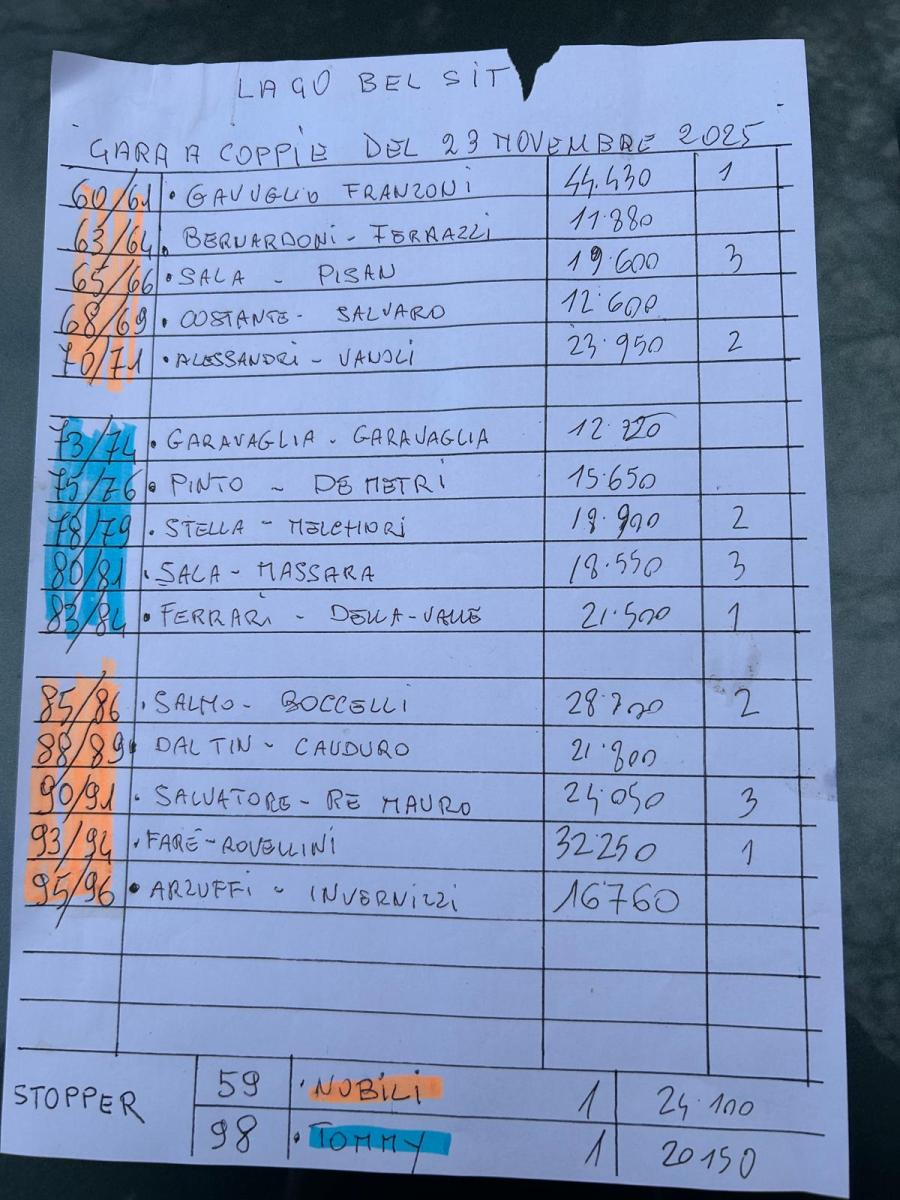 LAGO BEL SIT
GARA A COPPIE DEL 23 NOVEMBRE 2025
60/61 • GAVUGLIO FRANZONI 44.430 1
63/64 • BERNARDONI - FERRAZZI 11.880
65/66 • SALA - PISAN 19.600 3
68/69 • COSTANTE - SALVARO 12.600
70/71 • ALESSANDRI - VANOLI 23.950 2
73/74 • GARAVAGLIA - GARAVAGLIA 12.720
75/76 • PINTO - DE METRI 15.650
78/79 • STELLA - MELCHIORI 18.990 2
80/81 • SALA - MASSARA 18.550 3
83/84 • FERRARI - DELLA-VALLE 21.500 1
85/86 • SALMO - BOCCELLI 28.700 2
88/89 • DAL TIN - CAUDURO 21.800
90/91 • SALVATORE - RE MAURO 24.050 3
93/94 • FARÈ - ROVELLINI 32250 1
95/96 • ARZUFFI - INVERNIZZI 16760
STOPPER 59 • NOBILI 1 24.100
98 • TOMMY 1 20150